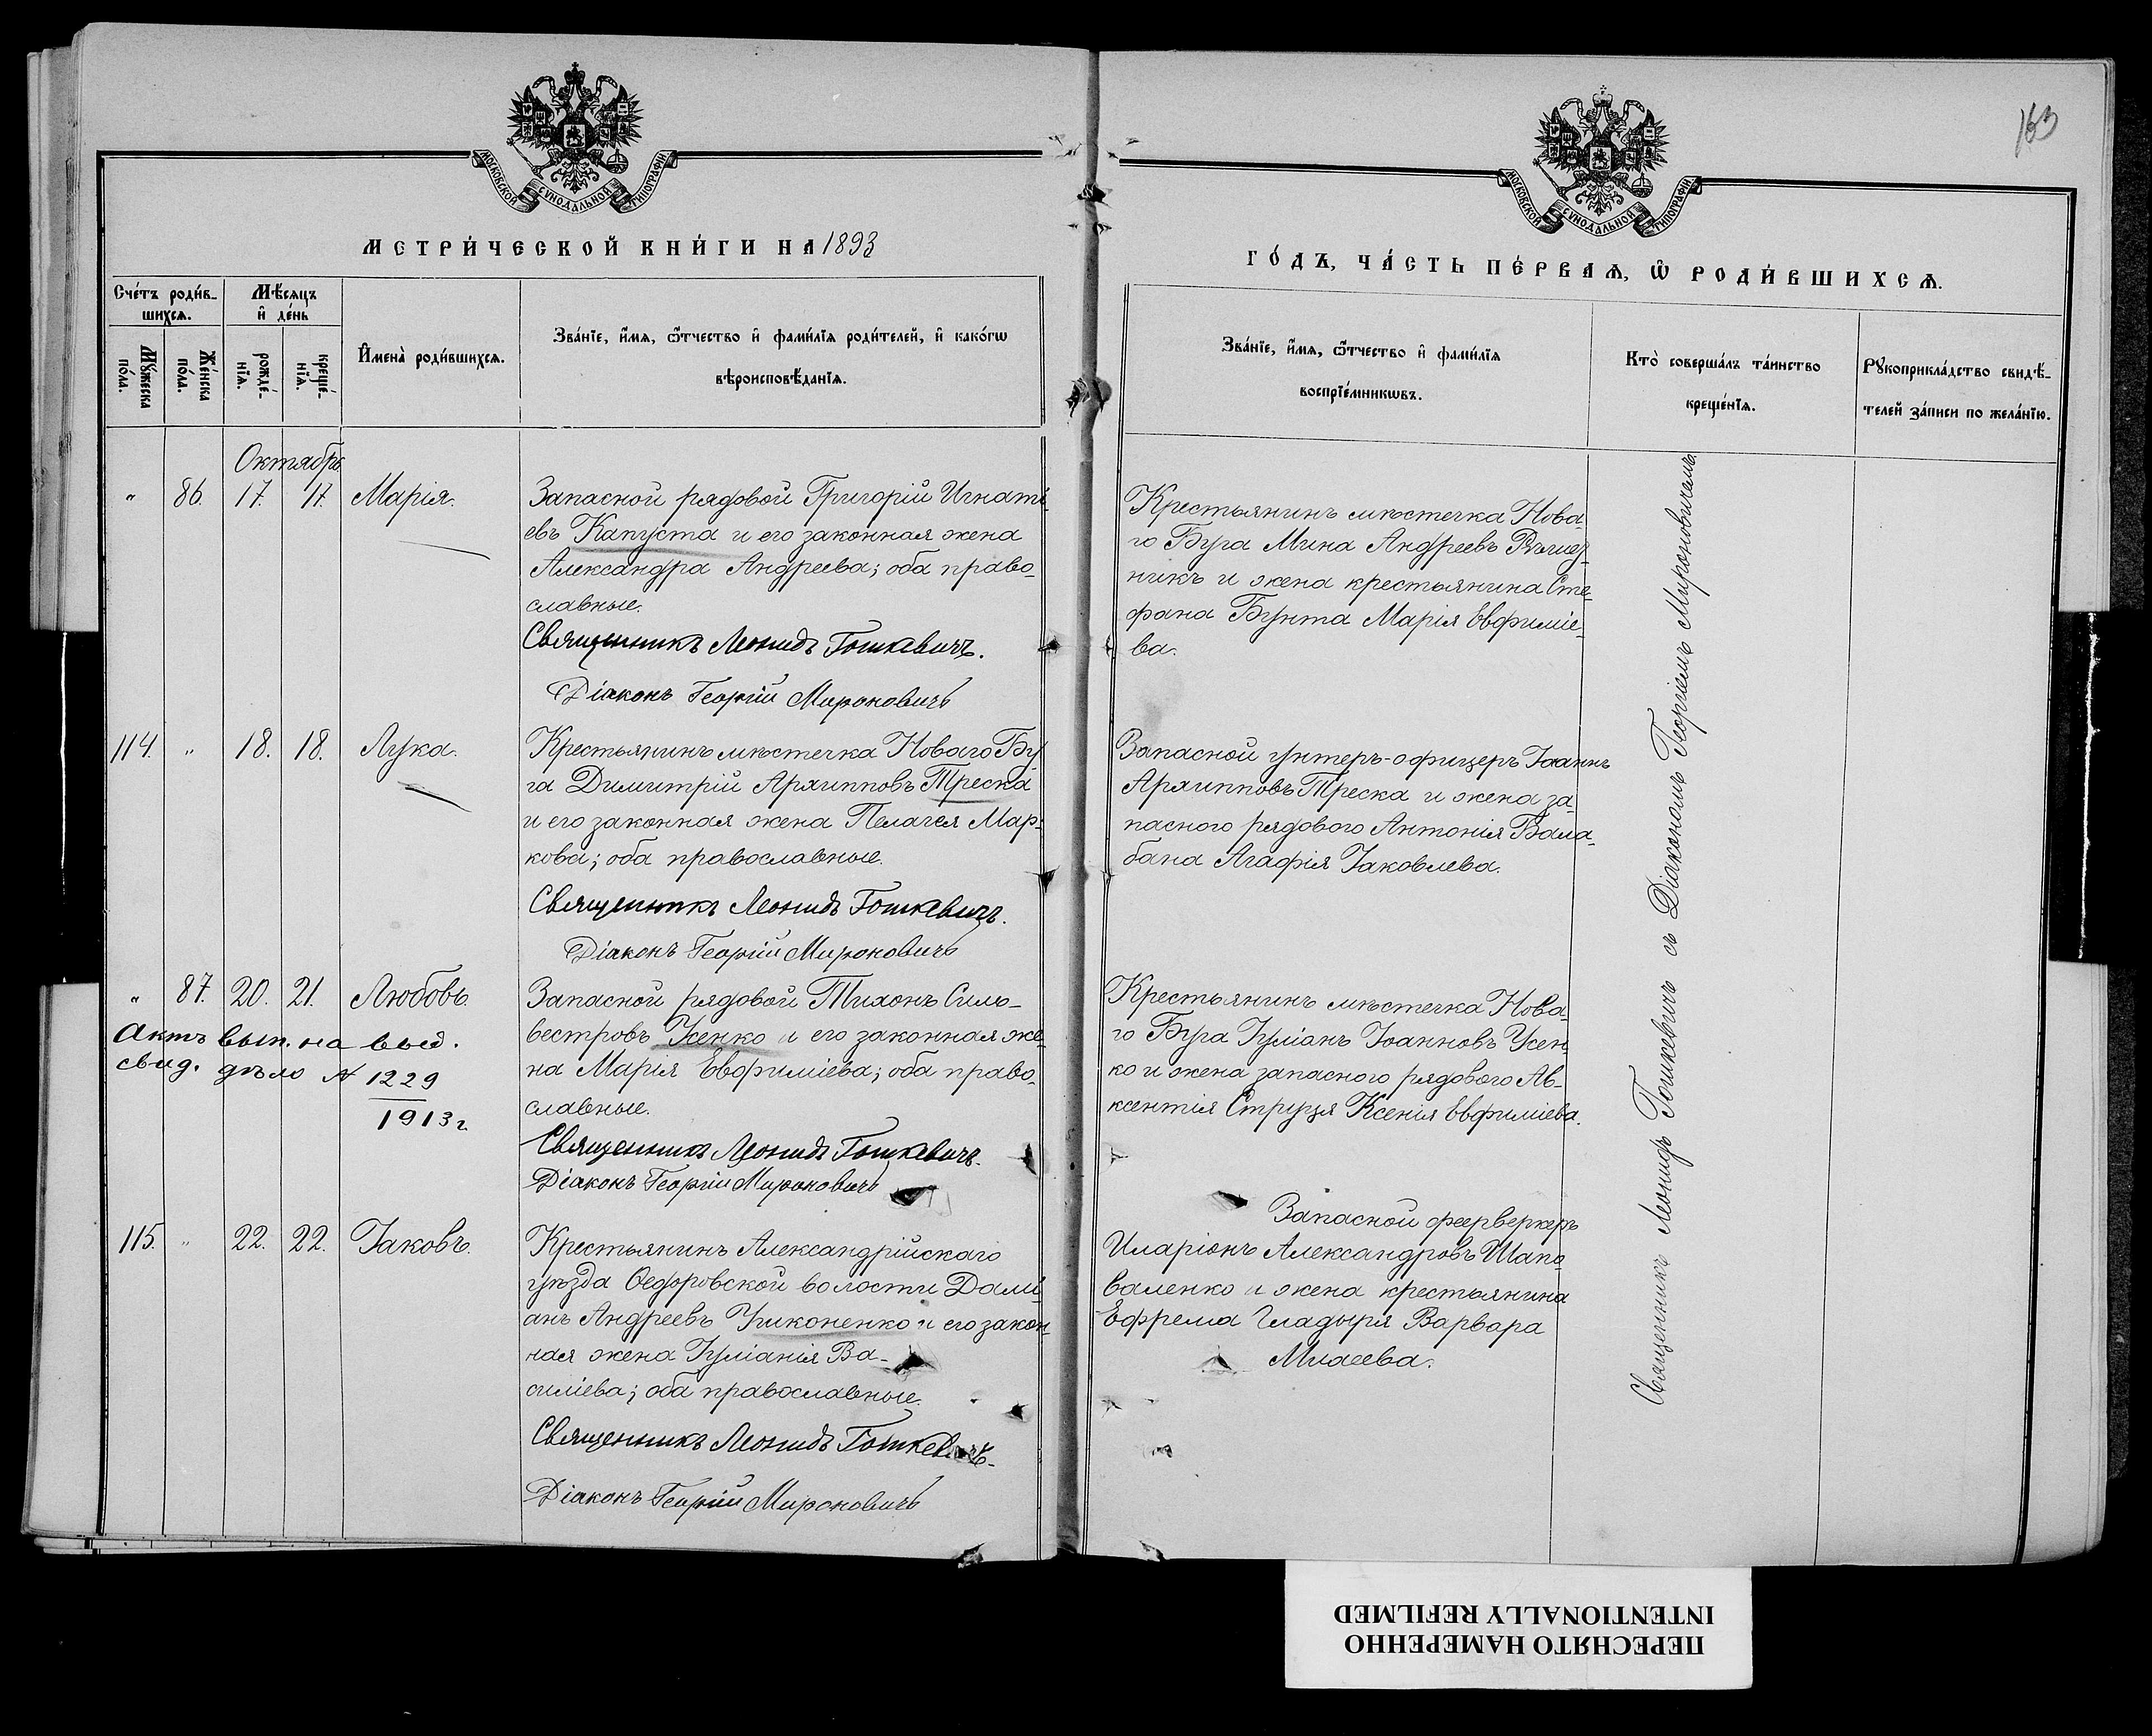 163
МОСКОВСКОЙ СѴНОДАЛЬНОЙ ТИПОГРАФІИ
МОСКОВСКОЙ СѴНОДАЛЬНОЙ ТИПОГРАФІИ
МЕТРИ́ЧЕСКОЙ КНИ́ГИ НА 1893
ГО́ДЪ, ЧА́СТЬ ПЕ́РВАѦ, Ѡ҆ РОДИ́ВШИХСѦ.
Сче́тъ роди́в-
шихсѧ.
Мѣ́сѧцъ
и҆ де́нь
Мꙋ́жеска
по́ла.
Же́нска
по́ла.
рожде́-
нїѧ.
креще́-
нїѧ.
И҆мена̀ роди́вшихсѧ.
Зва́нїе, и҆́мѧ, ѻ҆́тчество и҆ фами́лїѧ роди́телей, и҆ како́гѡ
вѣроисповѣ́данїѧ.
Зва́нїе, и҆́мѧ, ѻ҆́тчество и҆ фами́лїѧ
воспрїе́мникѡвъ.
Кто̀ соверша́лъ та́инство
креще́нїѧ.
Рꙋкоприкла́дство свидѣ́-
телей за́писи по жела́нїю.
Октябрь
" 86. 17. 17. Марія.
Запасной рядовой Григорій Игнаті-
евъ Капуста и его законная жена
Александра Андреева; оба право-
славные.
Священникъ Леонидъ Гошкевичъ.
Діаконъ Георгій Мироновичъ
Крестьянинъ мѣстечка Нова-
го Буга Мина Андреевъ
никъ и жена крестьянина Сте-
фана Бунта Марія Евфиміе-
ва.
114. " 18. 18. Лука.
Крестьянинъ мѣстечка Новаго Бу-
га Димитрій Архипповъ Треска
и его законная жена Пелагея Мар-
кова; оба православные.
Священникъ Леонидъ Гошкевичъ.
Діаконъ Георгій Мироновичъ
Запасной унтеръ-офицеръ Іоаннъ
Архипповъ Треска и жена за-
пасного рядового Антонія Бала-
бана Агафія Іаковлева.
" 87. 20. 21. Любовь.
Актъ вып. на выд.
свид. дѣло № 1229
1913 г.
Запасной рядовой Тихонъ Силь-
вестровъ Усенко и его законная же-
на Марія Евфиміева; оба право-
славные.
Священникъ Леонидъ Гошкевичъ.
Діаконъ Георгій Мироновичъ
Крестьянинъ мѣстечка Нова-
го Буга Іуліанъ Іоанновъ Усен-
ко и жена запасного рядового Ав-
ксентія Струця Ксенія Евфиміева.
115. " 22. 22. Іаковъ.
Крестьянинъ Александрійскаго
уѣзда Ѳедоровской волости Дамі-
анъ Андреевъ Тихоненко и его закон-
ная жена Іуліанія Ва-
силіева; оба православные.
Священникъ Леонидъ Гошкевичъ.
Діаконъ Георгій Мироновичъ
Запасной фейерверкеръ
Иларіонъ Александровъ Шапо-
валенко и жена крестьянина
Ефрема Гладыря Варвара
Священникъ Леонидъ Гошкевичъ съ Діакономъ Георгіемъ Мироновичемъ.
ПЕРЕСНЯТО НАМЕРЕННО
INTENTIONALLY REFILMED